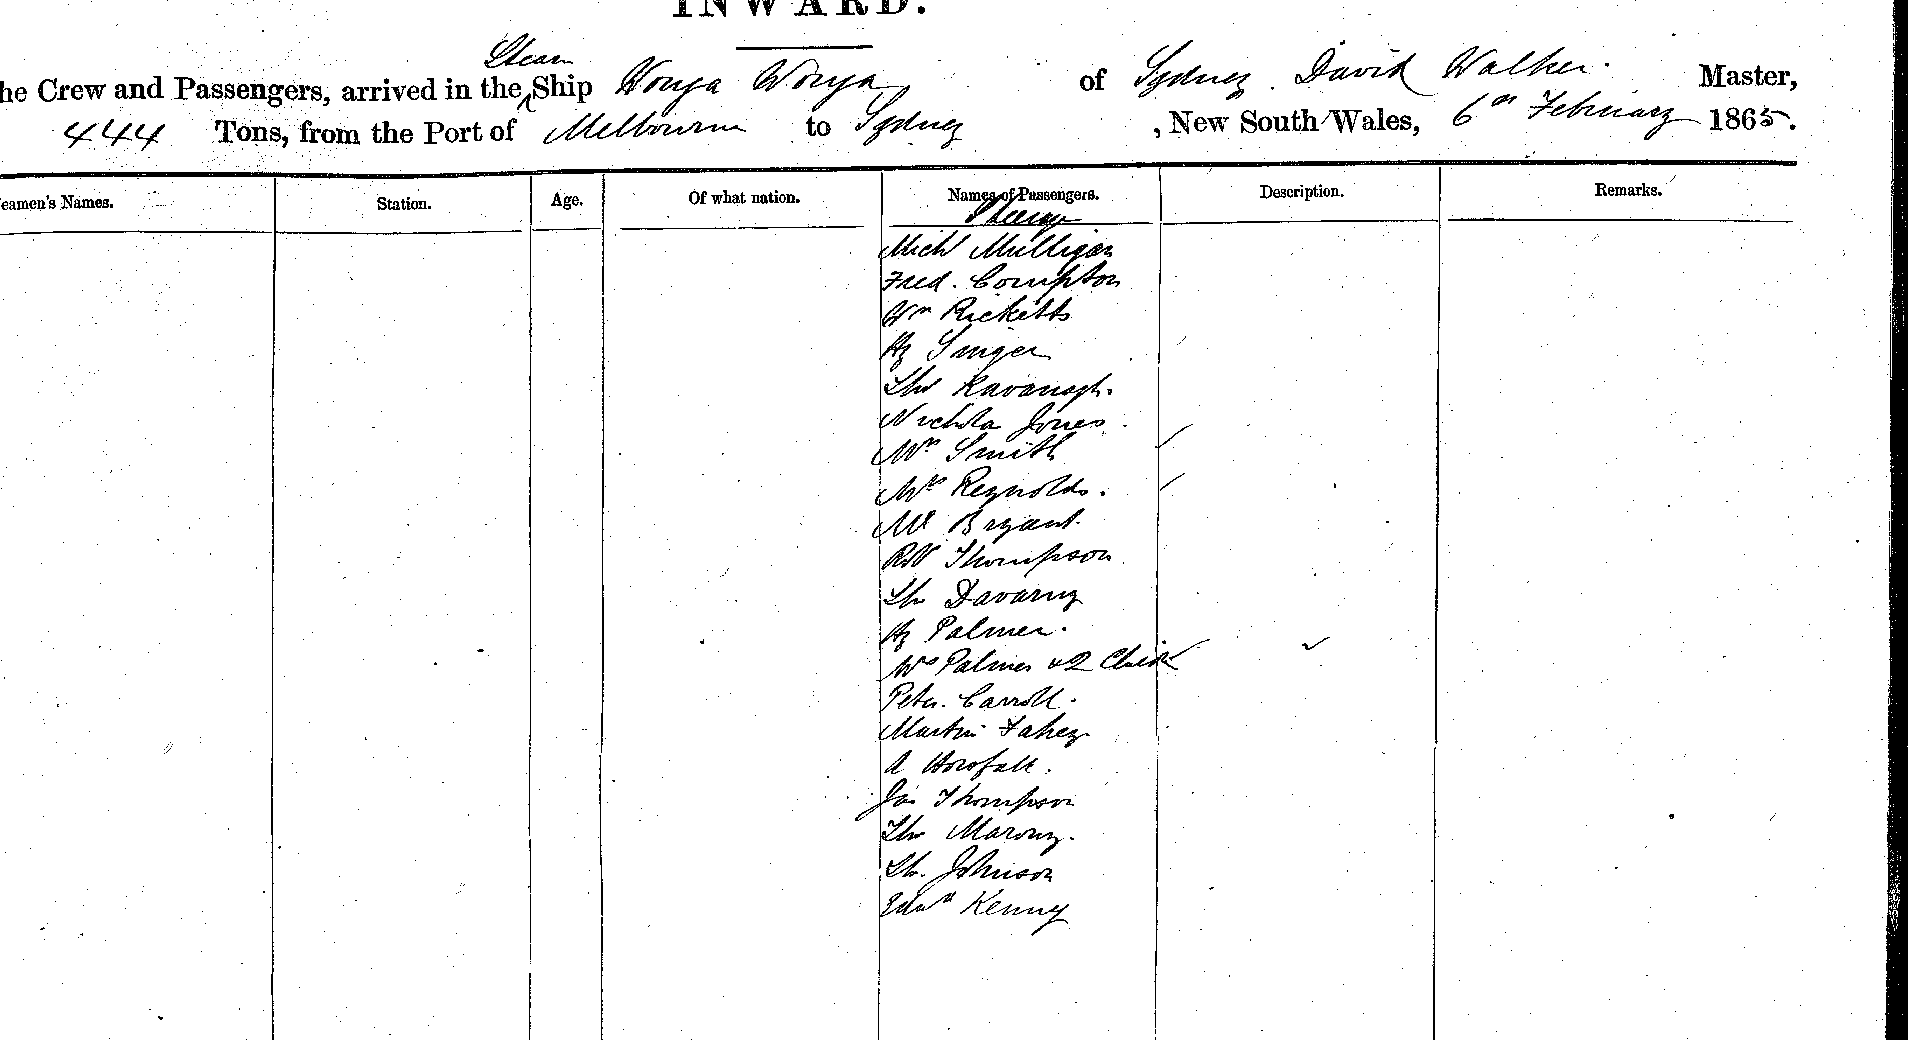 INWARD.
Steam
he Crew and Passengers, arrived in the Ship Wonga Wonga of Sydney David Walker. Master,
444 Tons, from the Port of Melbourne to Sydney , New South Wales, 6th February 1865.
eamen's Names. Station. Age. Of what nation. Names of Passengers. Description. Remarks.
Steerage
Mich Mulligan
Fred. Compton
Wm Ricketts
Hy Singer
Thos Kavanagh.
Nichola Jones
Mrs Smith
Mrs Reynolds.
Mr Bryant.
Robt Thompson
Th Davarny
Hy Palmer.
Mrs Palmer & 2 Child
Peter Carroll.
Martin Fahey
A Horsfall.
Jas Thompson
Th Marony.
Th. Johnson
Edwd Kenny